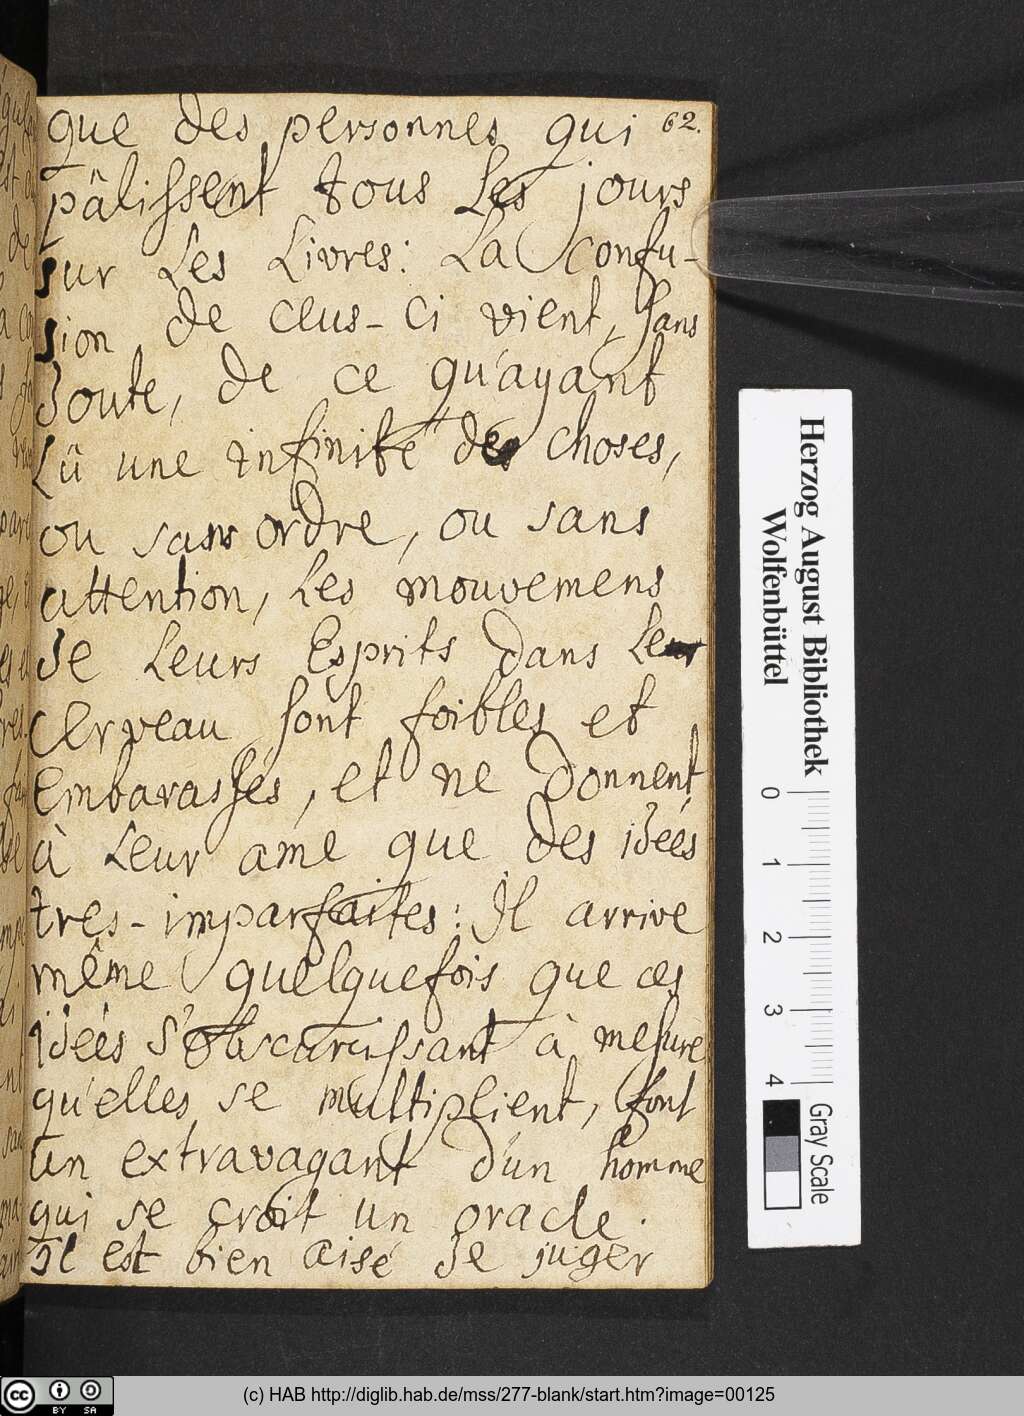 62.
que des personnes qui
pâlissent tous Les jours
sur Les Livres: La confu-
sion de ceus-ci vient, sans
doute, de ce qu'ayant
Lû une infinité des choses,
ou sans ordre, ou sans
attention, Les mouvemens
de Leurs Esprits dans Leur
cerveau sont foibles et
embarassés, et ne donnent
à Leur ame que des idées
tres-imparfaites: Il arrive
même quelquefois que ces
idées s'obscurcissant à mesure
qu'elles se multiplient, font
un extravagant d'un homme
qui se croit un oracle.
Il est bien aisé de juger
Herzog August Bibliothek
Wolfenbüttel
0 1 2 3 4
Gray Scale
cc BY SA
(c) HAB http://diglib.hab.de/mss/277-blank/start.htm?image=00125